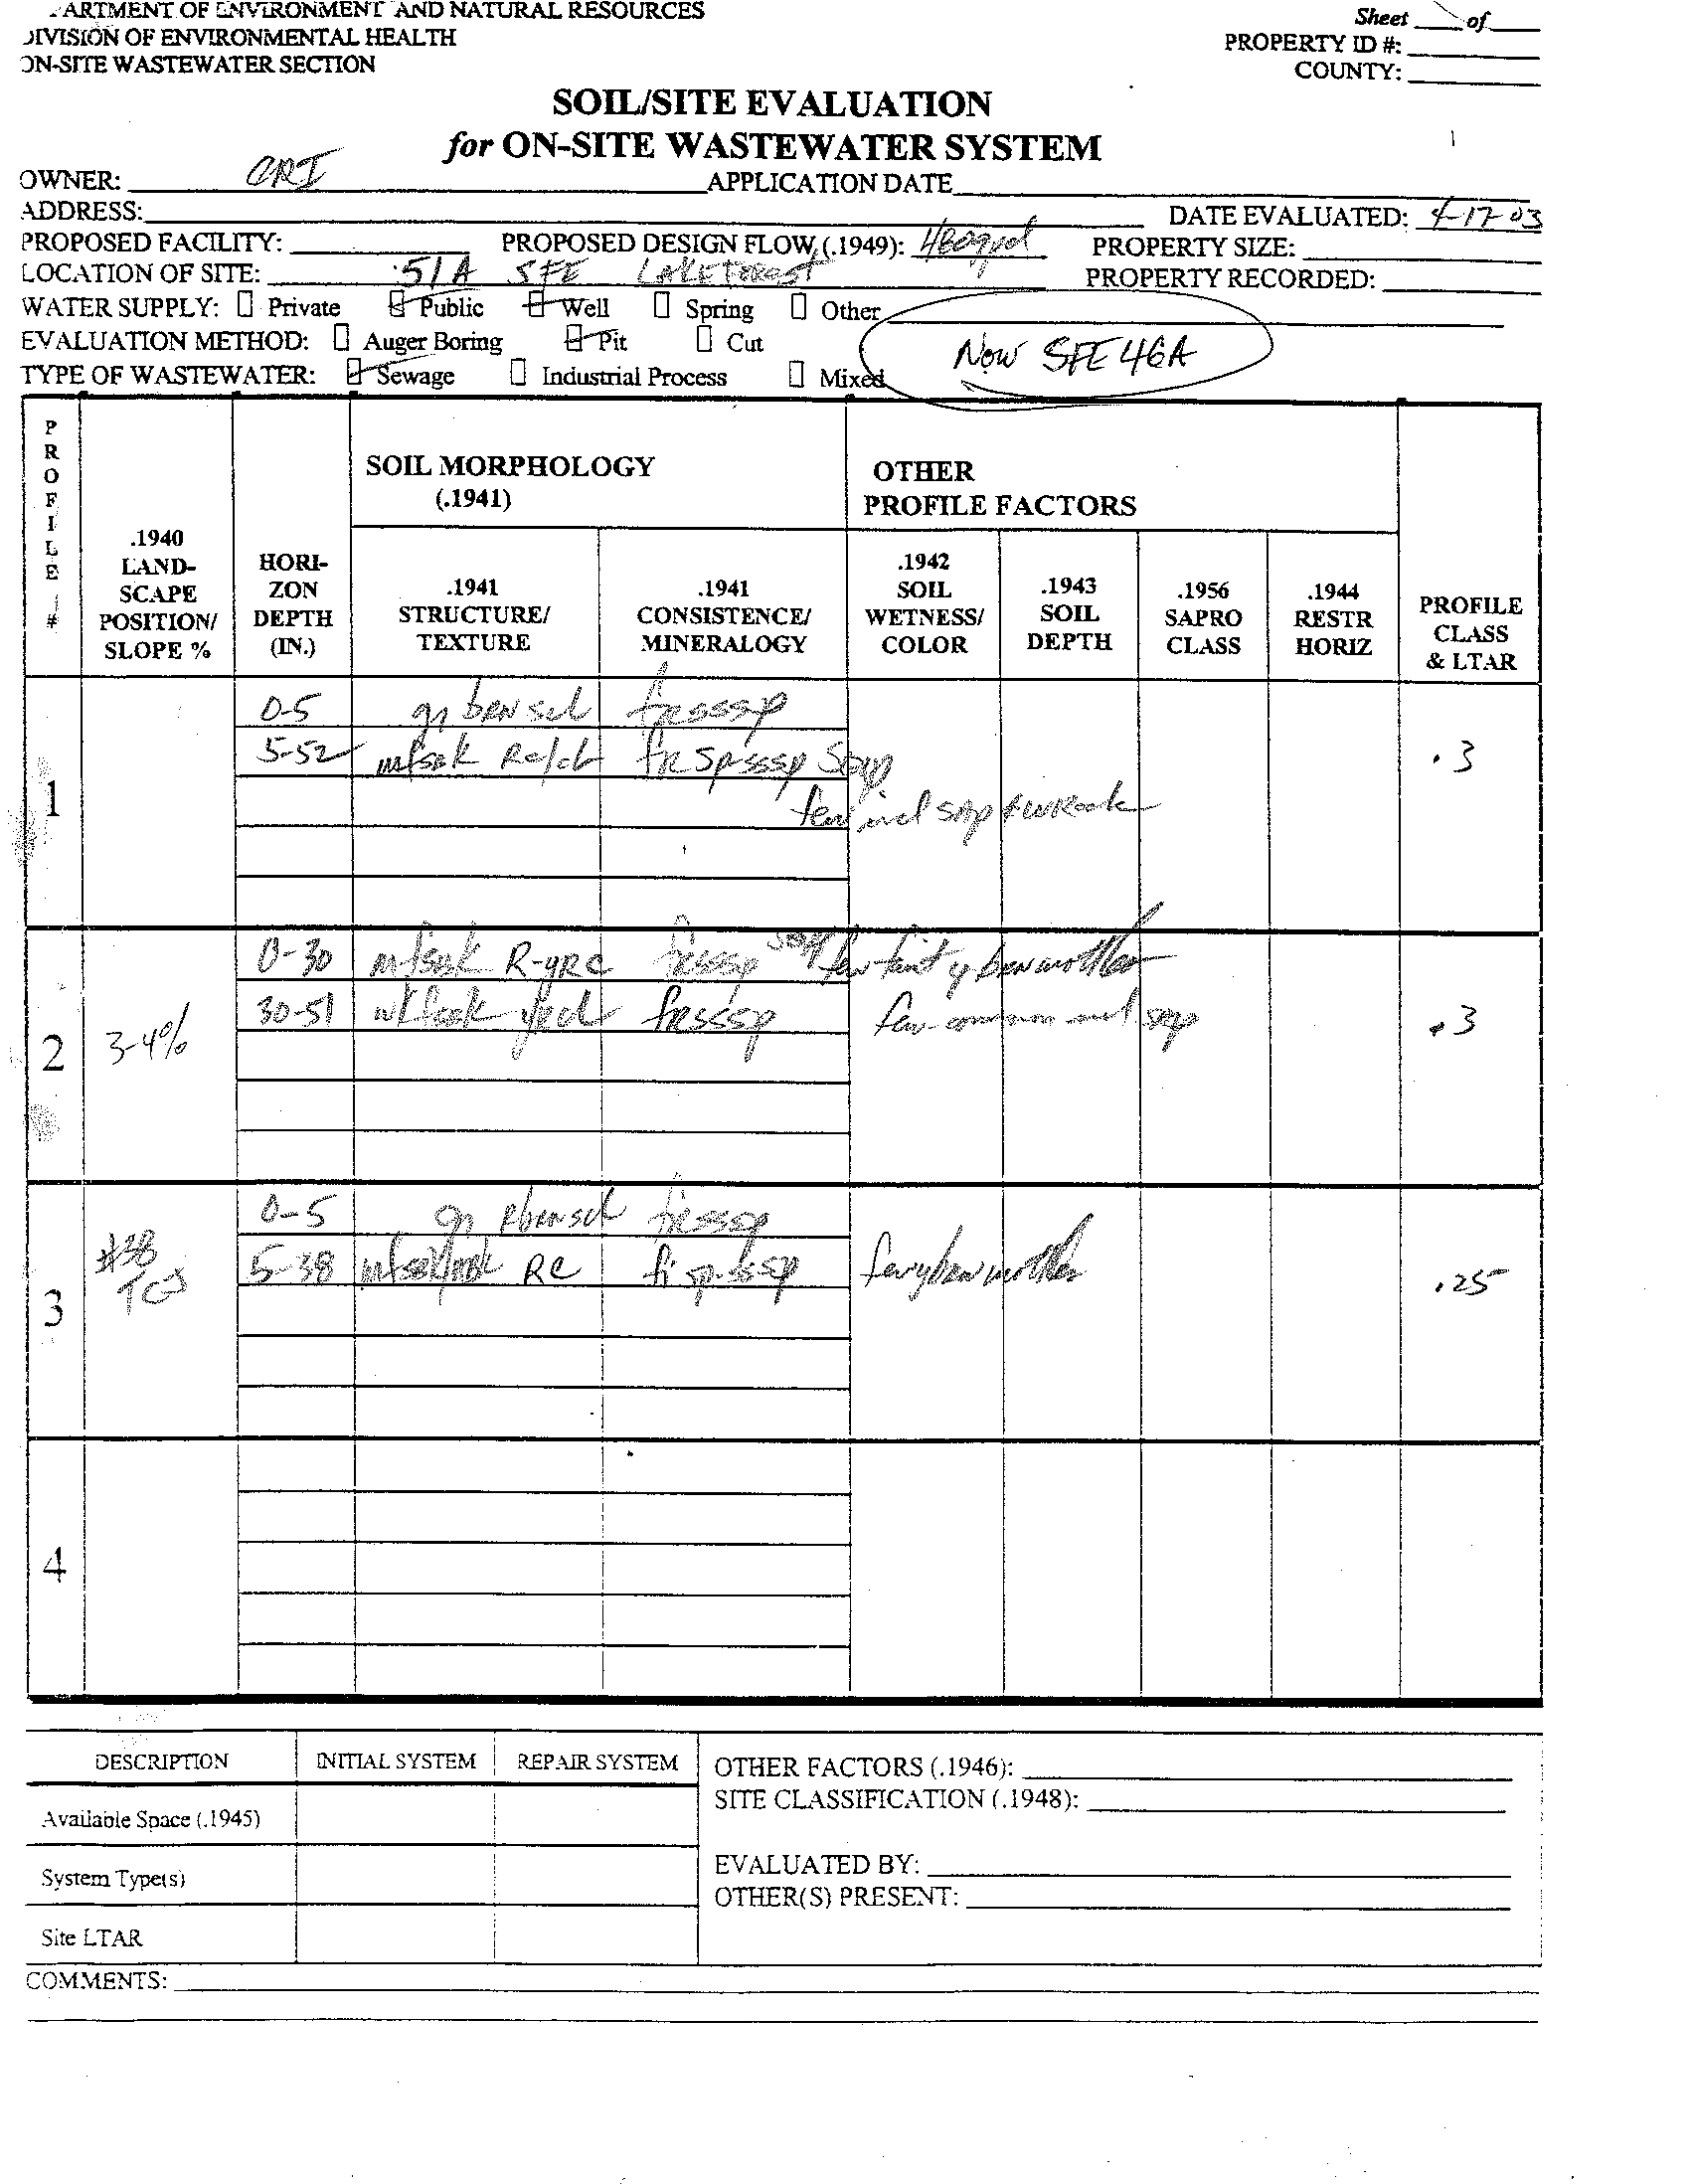 ARTMENT OF ENVIRONMENT AND NATURAL RESOURCES
DIVISION OF ENVIRONMENTAL HEALTH
ON-SITE WASTEWATER SECTION
Sheet ___ of ___
PROPERTY ID #:
COUNTY:
SOIL/SITE EVALUATION
for ON-SITE WASTEWATER SYSTEM
OWNER: CRI APPLICATION DATE
ADDRESS: DATE EVALUATED: 4-17-03
PROPOSED FACILITY: PROPOSED DESIGN FLOW (.1949): 480gpd PROPERTY SIZE:
LOCATION OF SITE: 51A SFE LAKE FOREST PROPERTY RECORDED:
WATER SUPPLY: Private Public Well Spring Other
EVALUATION METHOD: Auger Boring Pit Cut
Now SFE 46A
TYPE OF WASTEWATER: Sewage Industrial Process Mixed
PROFILE #
.1940 LAND-SCAPE POSITION/ SLOPE %
HORI-ZON DEPTH (IN.)
SOIL MORPHOLOGY (.1941)
.1941 STRUCTURE/ TEXTURE
.1941 CONSISTENCE/ MINERALOGY
OTHER PROFILE FACTORS
.1942 SOIL WETNESS/ COLOR
.1943 SOIL DEPTH
.1956 SAPRO CLASS
.1944 RESTR HORIZ
PROFILE CLASS & LTAR
1
0-5 gr brn scl frsssp
5-52 mfsbk Rc/cl fr sp-sssp
.3
few incl sap
2 3-4%
0-30 mfsbk R-yRc frsssp few faint y brn mottles
30-51 wkfsbk yRcl frsssp few-common incl sap
.3
3 #38
0-5 gr Rbrn scl frsssp
5-38 mfsbk/mbk RC fi sp-sssp few ybrn mottles
.25
4
DESCRIPTION INITIAL SYSTEM REPAIR SYSTEM
Available Space (.1945)
System Type(s)
Site LTAR
OTHER FACTORS (.1946):
SITE CLASSIFICATION (.1948):
EVALUATED BY:
OTHER(S) PRESENT:
COMMENTS: